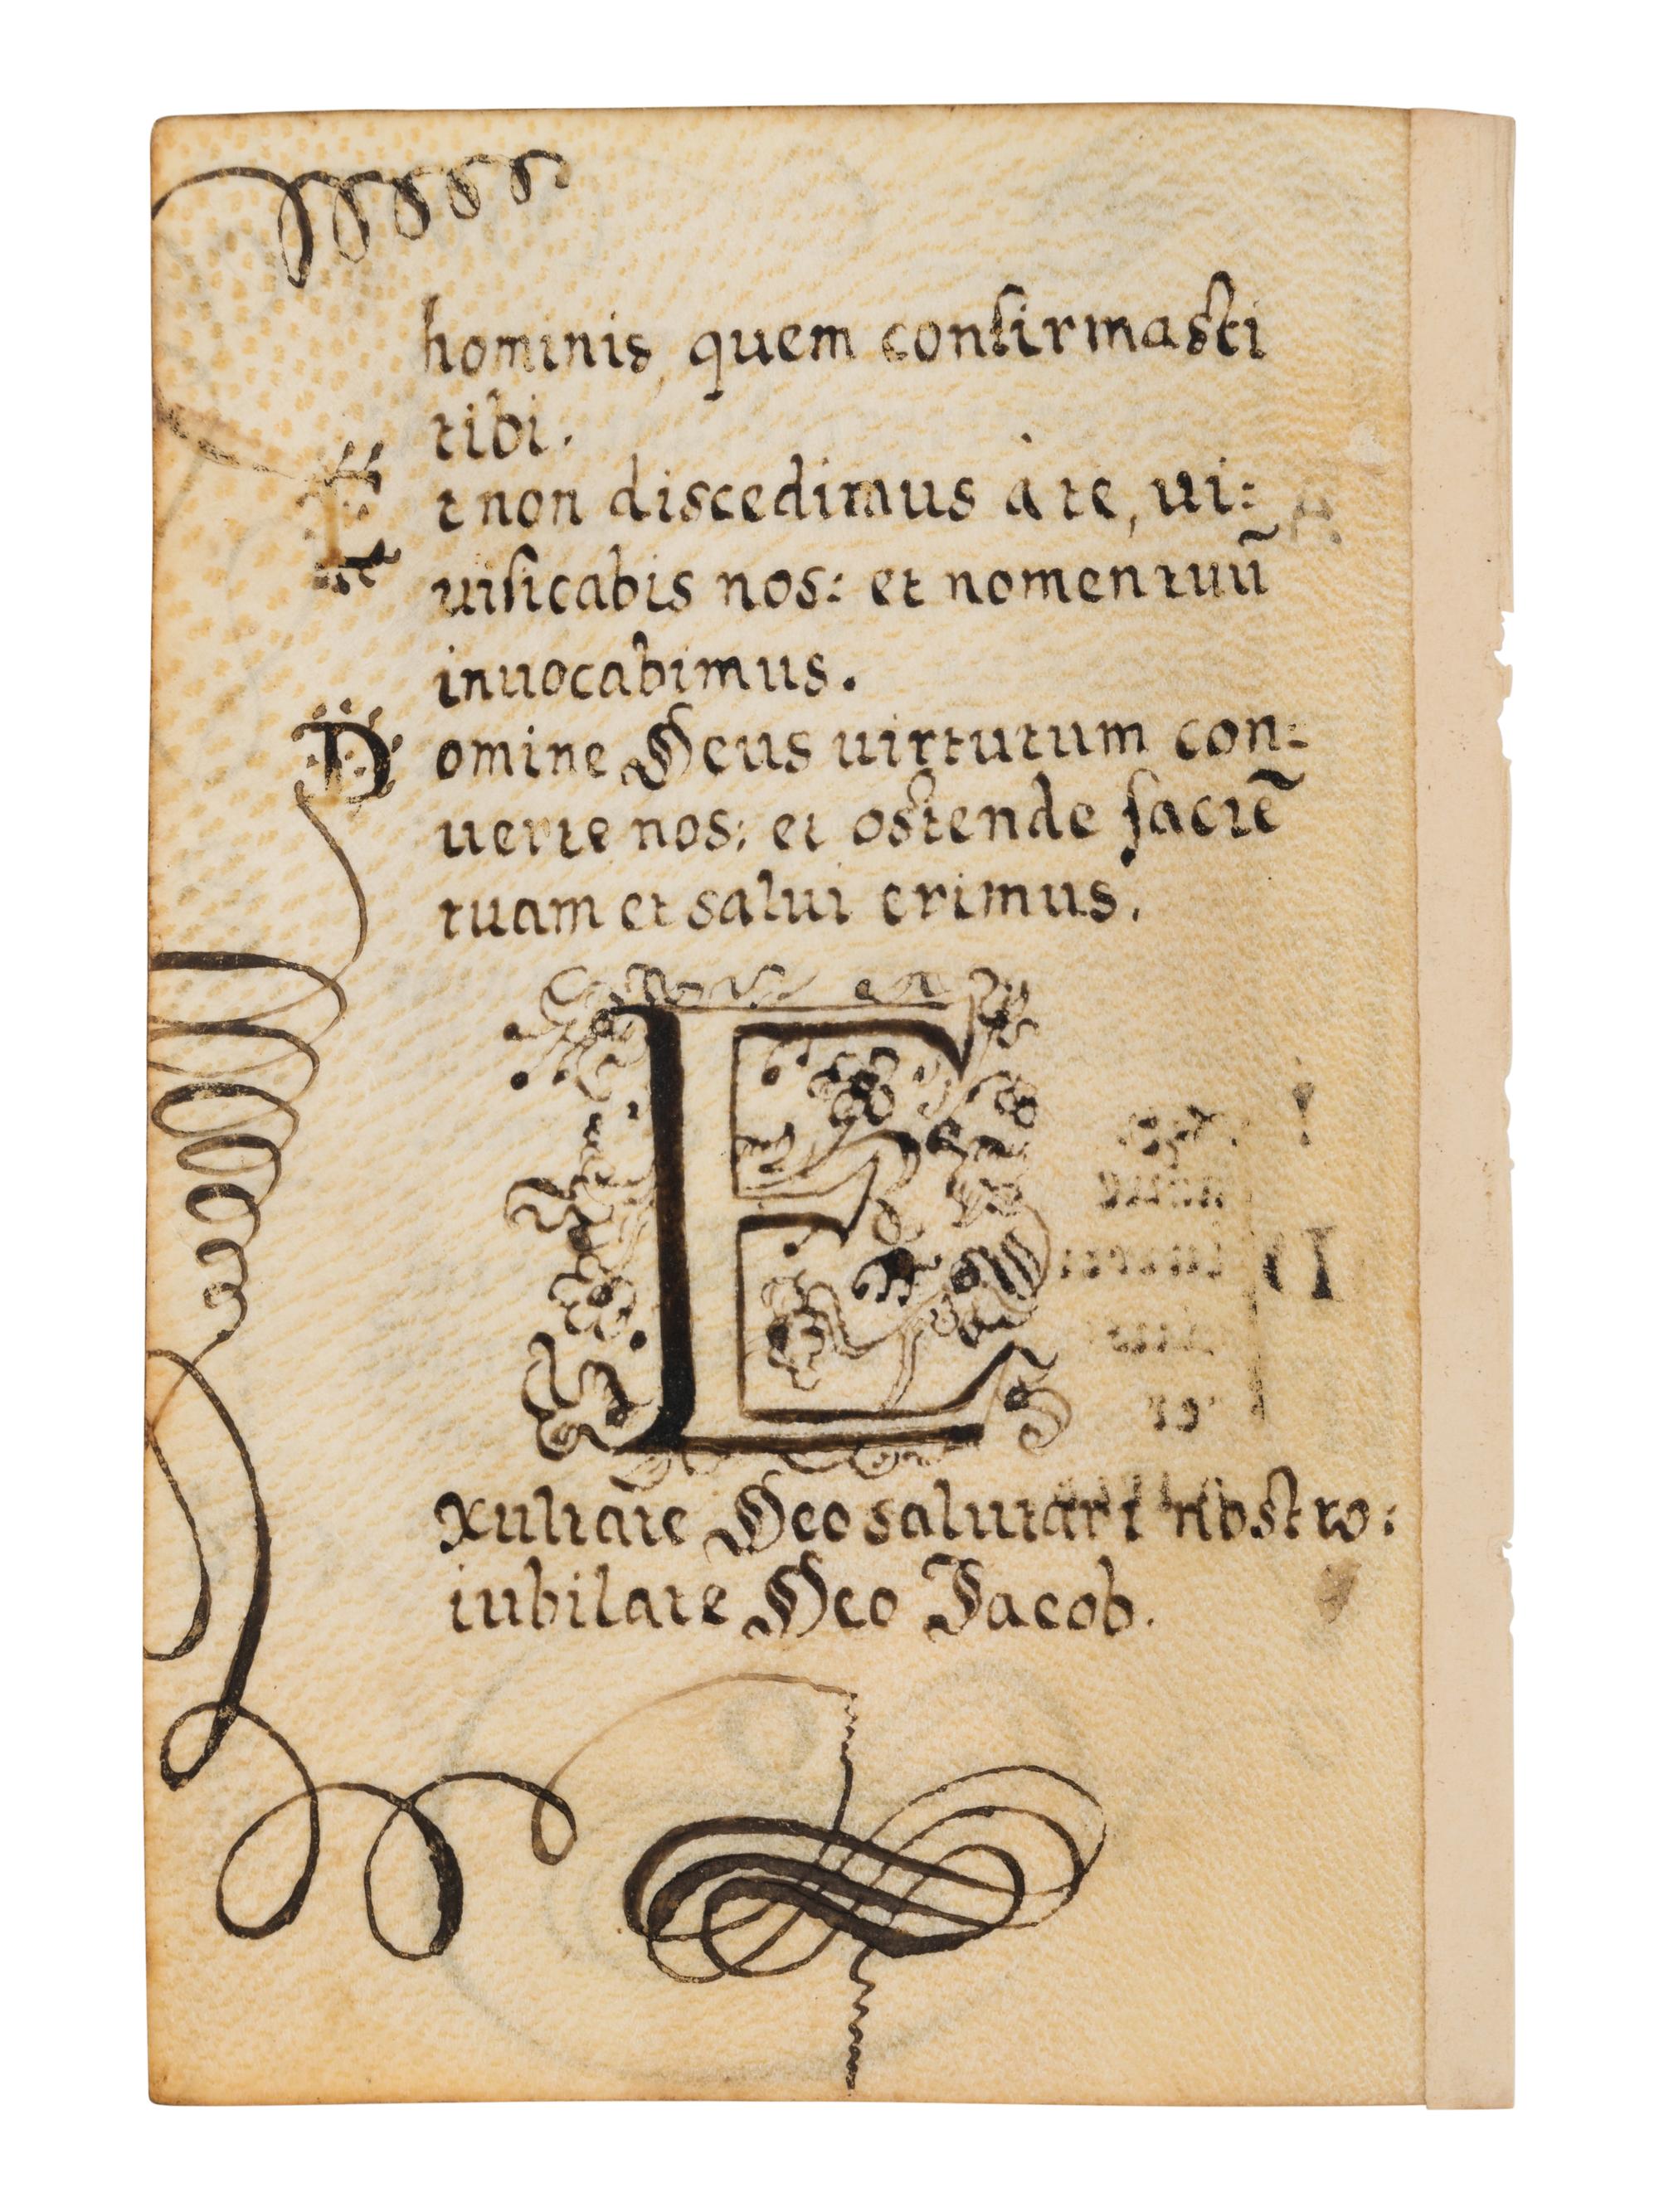 hominis, quem confirmasti
tibi.
Et non discedimus à te, ui:
uificabis nos: et nomen tuū
inuocabimus.
Domine Deus uirtutum con:
uerte nos: et ostende faciē
tuam et salui erimus.
E
xultate Deo salutari nostro:
iubilate Deo Jacob.